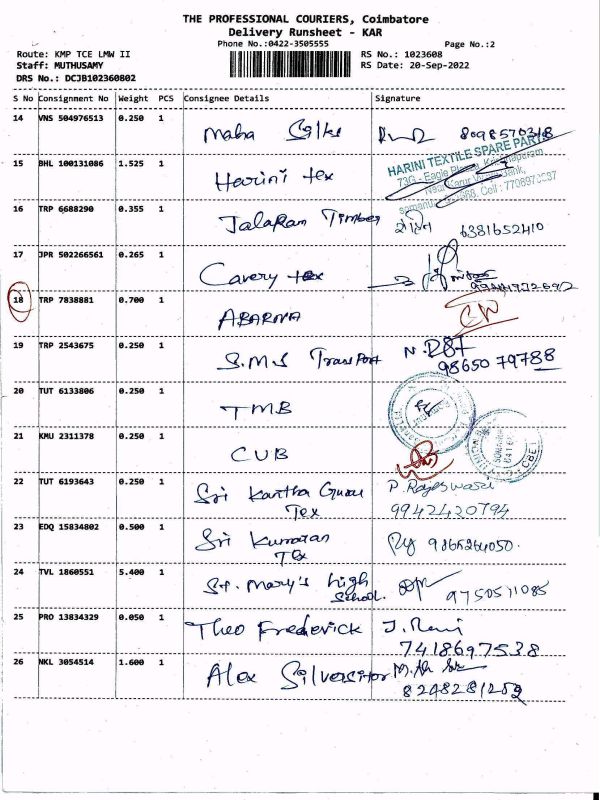 THE PROFESSIONAL COURIERS, Coimbatore
Delivery Runsheet - KAR
Phone No.:0422-3505555
Page No.:2
Route: KMP TCE LMW II
RS No.: 1023608
Staff: MUTHUSAMY
RS Date: 20-Sep-2022
DRS No.: DCJB102360802
S No Consignment No Weight PCS Consignee Details Signature
14 VNS 504976513 0.250 1 Maha Silks 8098570318
15 BHL 100131086 1.525 1 Harini tex
HARINI TEXTILE SPARE PARTS
73G - Eagle
Near Karur Bank,
Cell : 
16 TRP 6688290 0.355 1 Jalaram Timber 6381652410
17 JPR 502266561 0.265 1 Cavery tex
18 TRP 7838881 0.700 1 ABARNA
19 TRP 2543675 0.250 1 S.M.S Transport
9865079788
20 TUT 6133806 0.250 1 TMB
21 KMU 2311378 0.250 1 CUB
22 TUT 6193643 0.250 1 Sri Kantha Guru P. Rajeswari
Tex 9942420794
23 EDQ 15834802 0.500 1 Sri Kumaran
Tex
24 TVL 1860551 5.400 1 St. Mary's high
School. 9750511085
25 PRO 13834329 0.050 1 Theo Frederick J. Rani
7418697538
26 NKL 3054514 1.600 1 Alex Silversitor